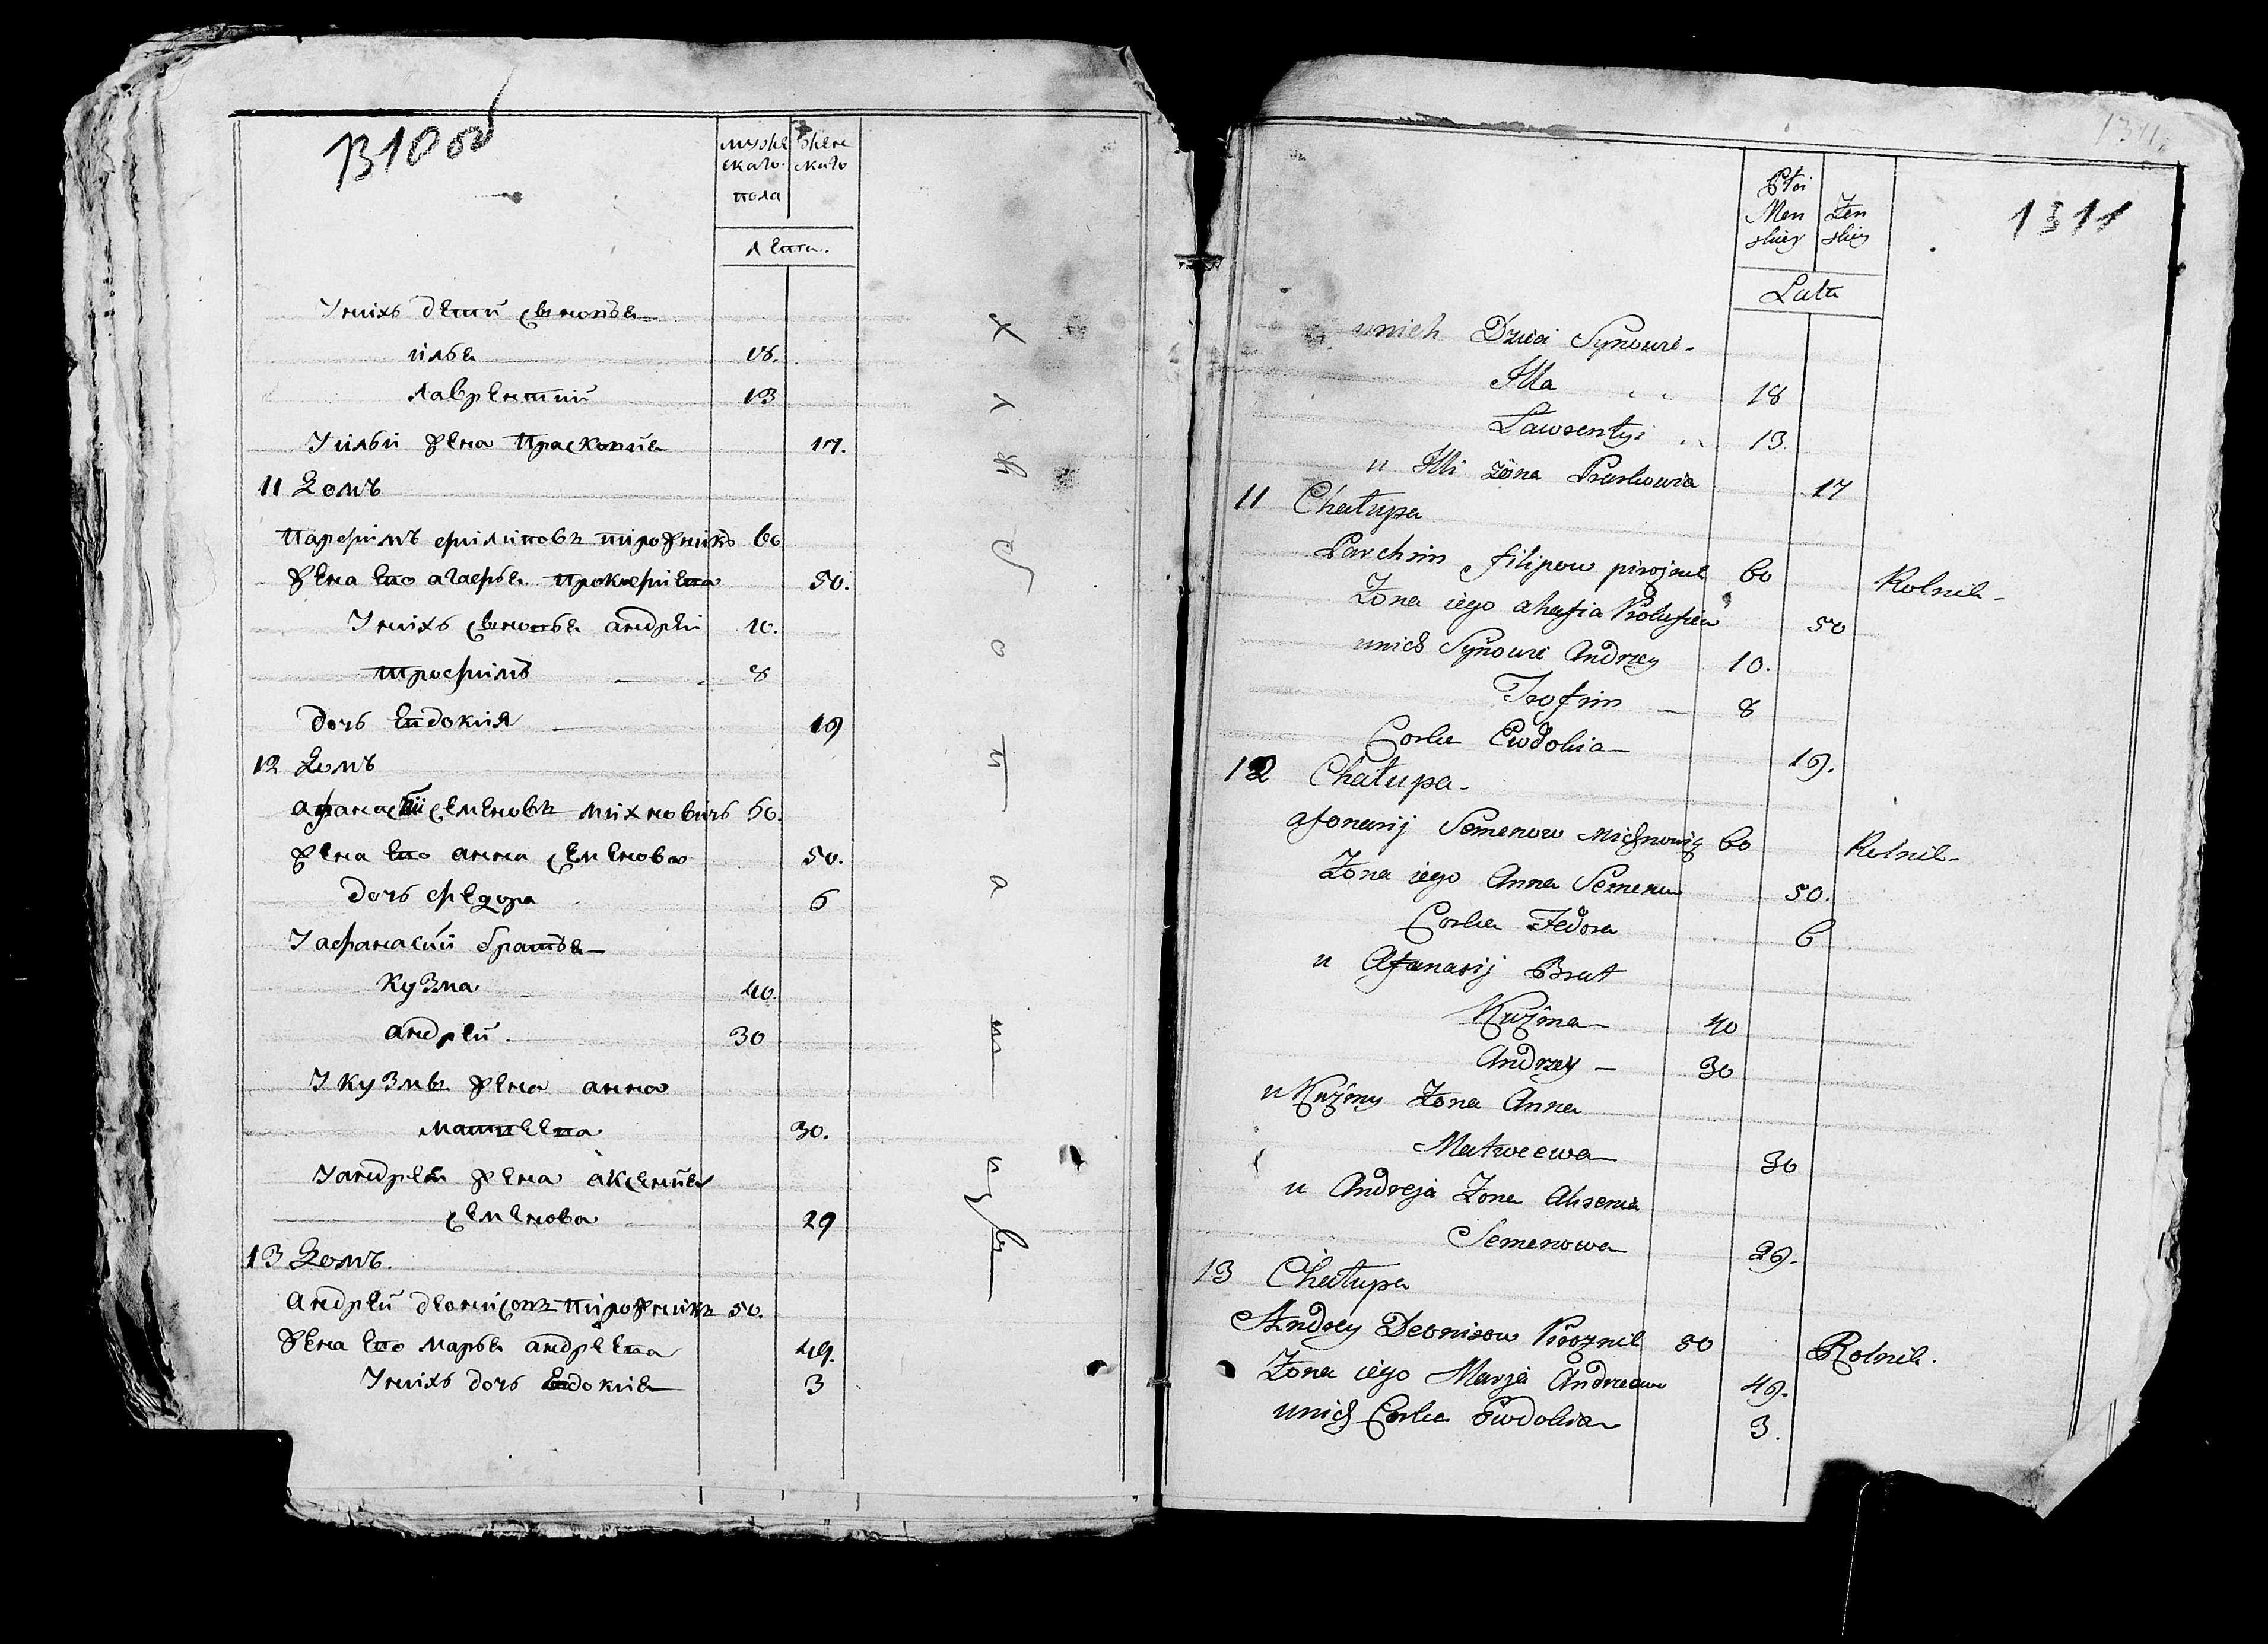 1310 об
мужескаго пола
женскаго
лета.
У нихъ дети сыновья
илья 18.
лаврентий 13
У ильи жена Прасковия 17.
11 Домъ
Парфимъ филиповъ пирожникъ 60
жена его агафья прокофиева 50.
У нихъ сыновья андрей 10.
трофимъ 8
дочь евдокия 19
12 Домъ
афанасий семеновъ михновичъ 60.
жена его анна семенова 50.
дочь федора 6
У афанасия братья
кузма 40.
андрей 30
У кузмы жена анна
матвеева 30.
У андрея жена аксения
семенова 29
13 Домъ.
андрей деонисовъ пирожникъ 50.
жена его марья андреева 49.
У нихъ дочь евдокия 3
хлебопашцы
1311
Płci Menskiey
Zenskiey
Lata
u nich Dzieci Synowie
Illa 18
Lawrentyi 13.
u Illi zona Praskowia 17
11 Chałupa
Parchim filipow pirożnik 60 Rolnik
Zona iego ahafia Prokofiew 50
u nich Synowie Andrzey 10.
Trofim 8
Corka Ewdokia 19.
12 Chałupa
afonasij Semenow Michnowicz 60 Rolnik
Zona iego Anna Semenow 50.
Corka Fedora 6
u Afanasij Brat
Kuźma 40
Andrzey 30
u Kuźmy Zona Anna
Matweewa 30
u Andreja Zona Aksenia
Semenowa 29.
13 Chałupa
Andrey Deonisow Pirożnik 50 Rolnik.
Zona iego Marja Andreewa 49.
u nich Corka Ewdokia 3.